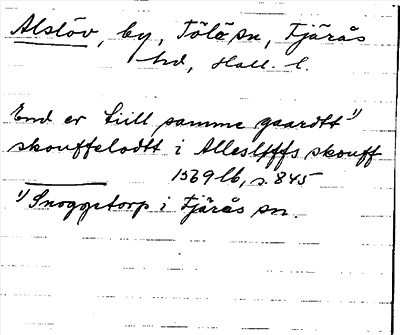 Alslöv, by, Tölö sn, Fjärås
hd, Hall. l.
End er tiill samme gaardtt 1)
skouffelodtt i Alleslefffs skouff
1569 lb, s. 845
1) Snoggetorp i Fjärås sn.